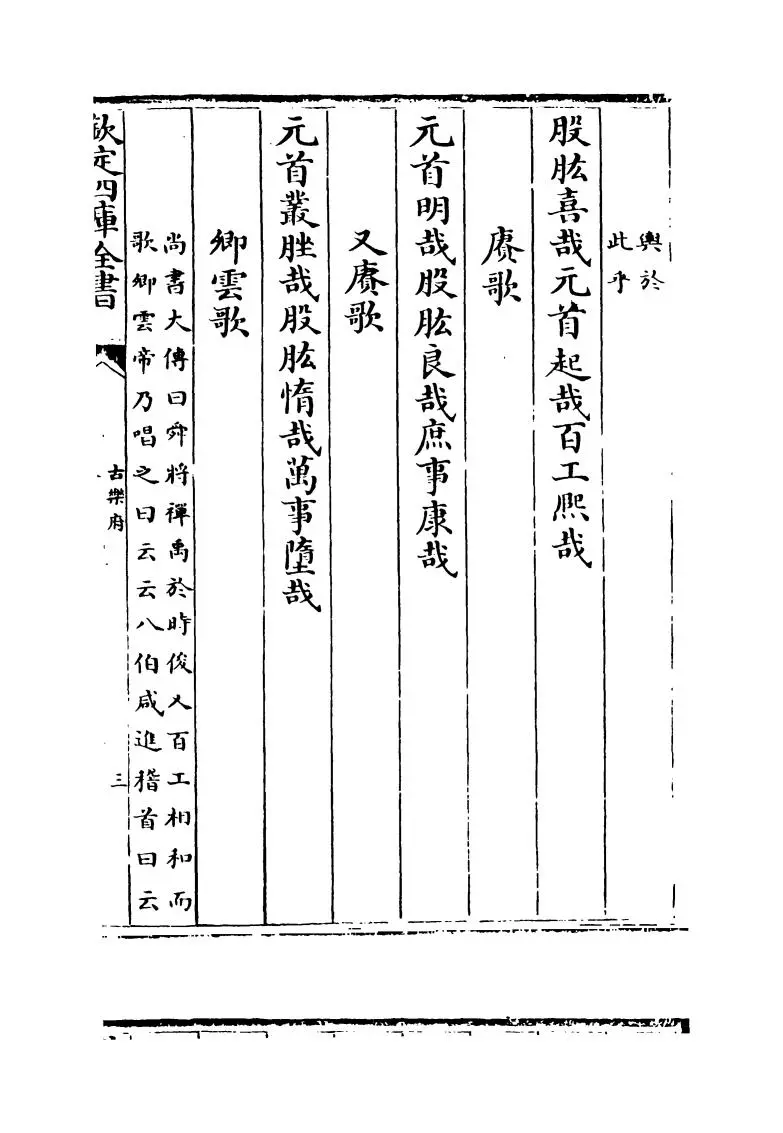 興於
此乎
股肱喜哉元首起哉百工熈哉
賡歌
元首明哉股肱良哉庶事康哉
又賡歌
元首叢脞哉股肱惰哉萬事墮哉
卿雲歌
尚書大傳曰舜將禪禹於時俊乂百工相和而
歌卿雲帝乃唱之曰云云八伯咸進稽首曰云
欽定四庫全書
古樂府
三